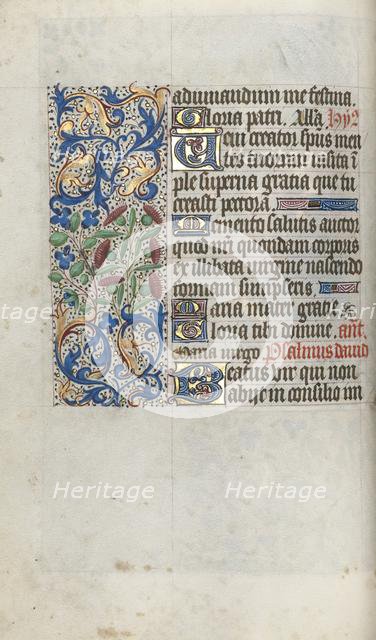 adiuuandum me festina.
Gloria patri. Alla. hyn̄
Ueni creator sp̄us men
tes tuorum uisita ī
ple superna gratia que tu
creasti pectora.
Memento salutis auctor
quod nr̄i quondam corporis
ex illibata uirgine nascendo
formam sumpseris.
Maria mater gratie
Gloria tibi domine. ant.
Maria uirgo Psalmus dauid
Beatus uir qui non
abijt in consilio im
Heritage Heritage
Heritage Heritage